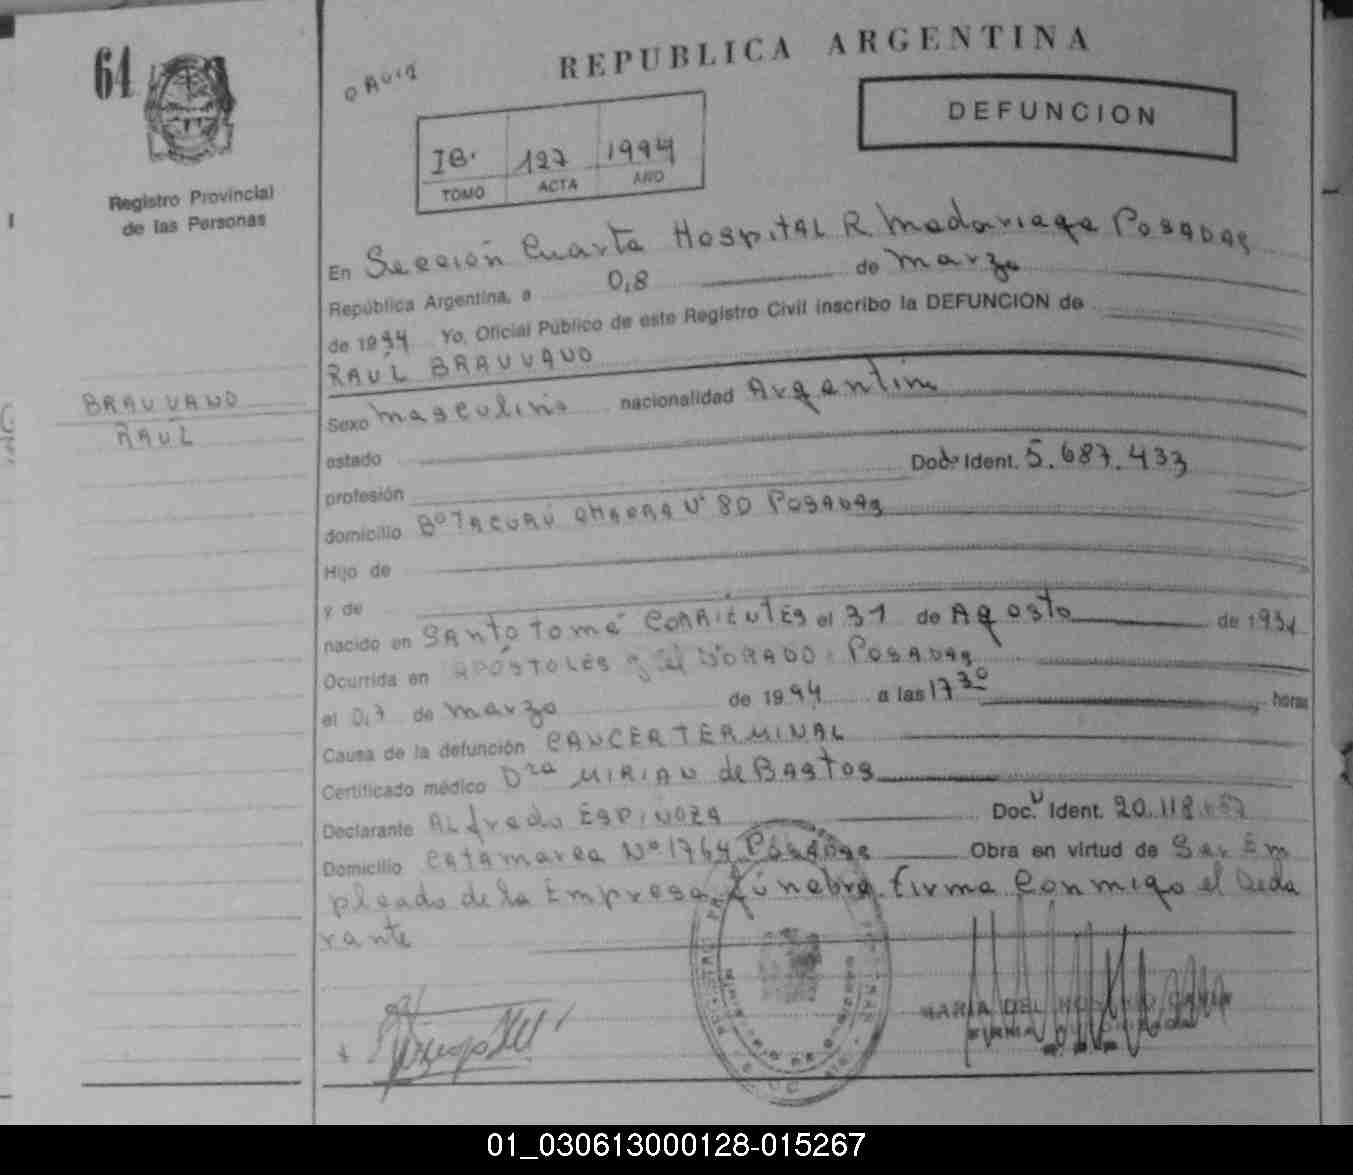 64
Registro Provincial
de las Personas
REPUBLICA ARGENTINA
DEFUNCION
IB. 127 1994
TOMO ACTA AÑO
BRAUVANO
RAÚL
En Sección Cuarta HOSPITAL R Madariaga POSADAS
República Argentina, a 0,8 de marzo
de 1994 Yo, Oficial Público de este Registro Civil inscribo la DEFUNCION de
RAÚL BRAUVANO
Sexo masculino nacionalidad Argentin
estado
profesión Doc. Ident. 5.687.433
domicilio Bº TACURÚ CHACRA Nº 80 POSADAS
Hijo de
y de
nacido en SANto Tomé CORRIENTES el 31 de Agosto de 1931
Ocurrida en APÓSTOLES y el DORADO POSADAS
el 0,7 de marzo de 1994 a las 17 30 horas
Causa de la defunción CANCER TERMINAL
Certificado médico Dra MIRIAN de BASTOS
Declarante ALfredo ESPINOZA Doc. Ident. 20.118.
Domicilio CATAMARCA Nº 1764 POSADAS Obra en virtud de Ser Em
pleado de la Empresa fúnebre. firma conmigo el decla
rante
MARIA DEL
01_030613000128-015267